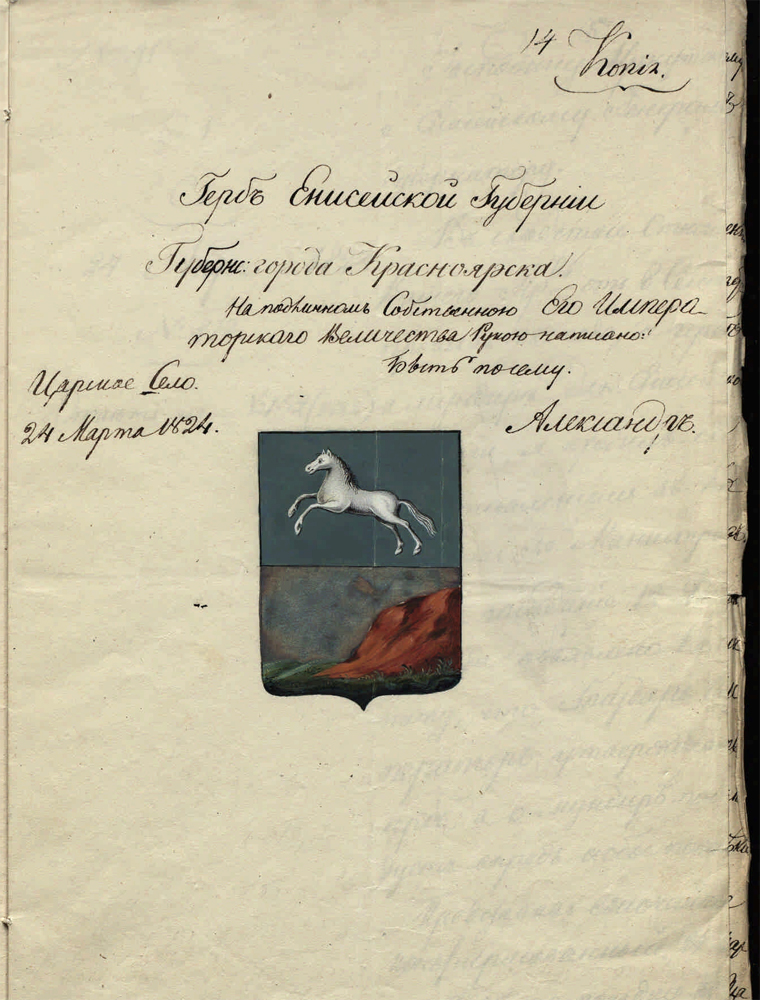 14
Копія.
Гербъ Енисейской Губерніи
Губернс: города Красноярска.
На подлинномъ Собственною Его Импера-
торскаго Величества Рукою написано:
Бысть по сему.
Царское Село.
24 Марта 1824.
Александръ.